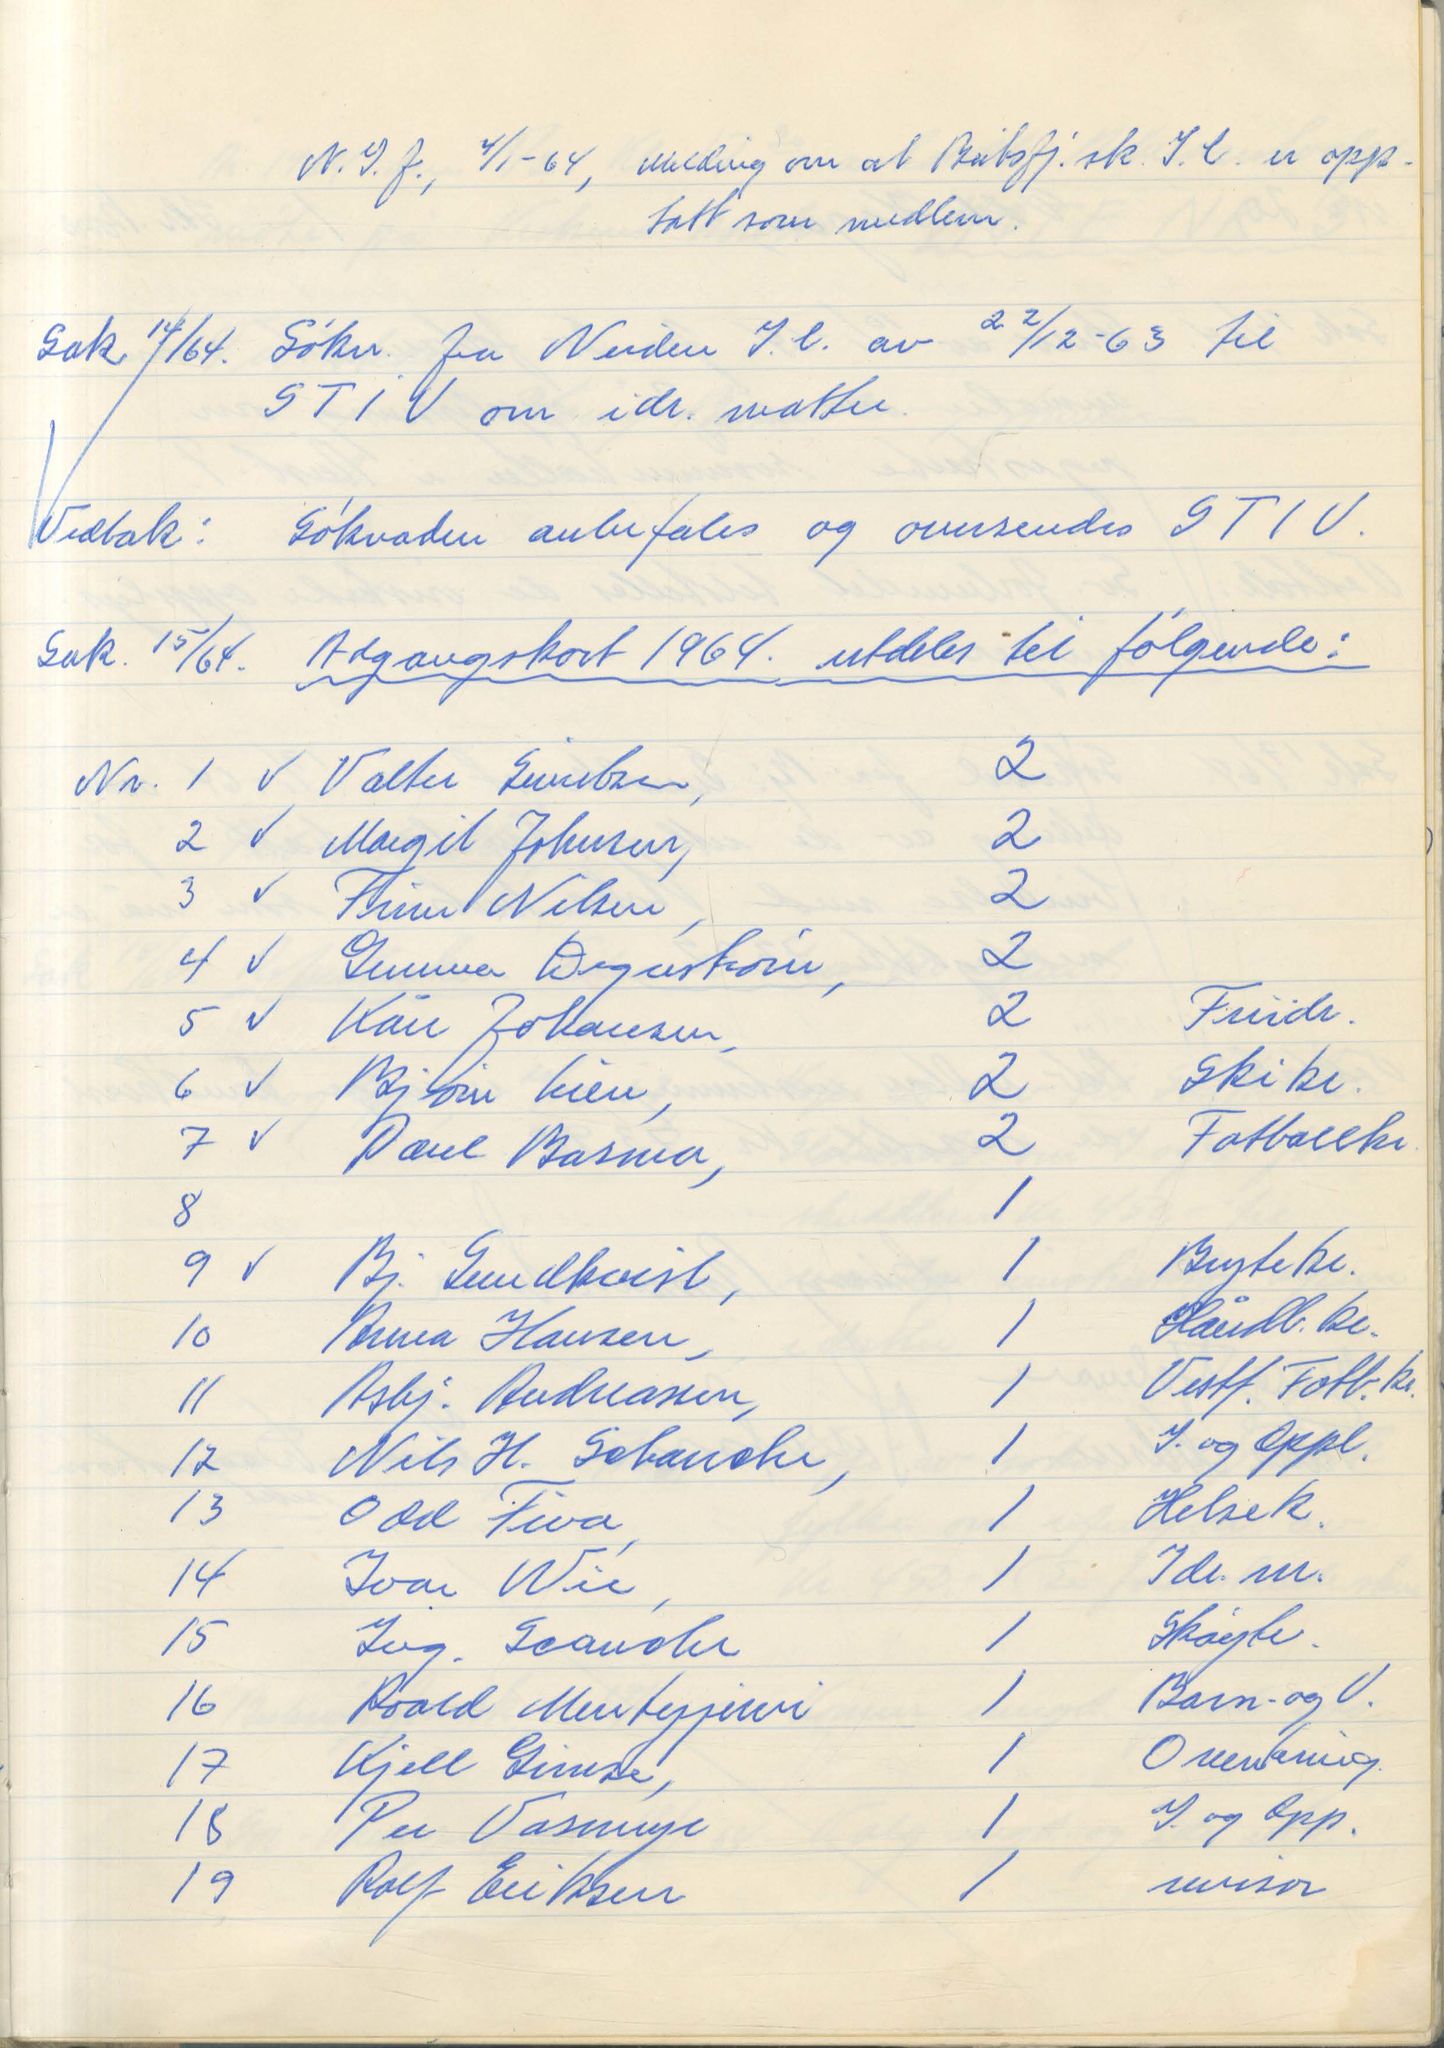 N.I.f., 4/1-64, melding om at Båtsfj. sk. I.l. er opp-
tatt som medlem.
Sak 14/64. Søkn. fra Neiden I.l. av 22/12-63 til
STIV om idr. matter.
Vedtak: Søknaden anbefales og oversendes STIV.
Sak. 15/64. Adgangskort 1964. utdeles til følgende:
Nr. 1 ✓ Valter Gerretzen, 2
2 ✓ Margit Johnsen, 2
3 ✓ Finn Nilsen, 2
4 ✓ Gunnar Wegnström, 2
5 ✓ Kåre Johansen, 2 Friidr.
6 ✓ Bjørn Lien, 2 Skikr.
7 ✓ Paul Basma, 2 Fotballkr.
8 1
9 ✓ Bj. Sundkvist, 1 Brytekr.
10 Anna Hansen, 1 Håndb. kr.
11 Asbj. Andreassen, 1 Vestf. Fotb. kr.
12 Nils H. Schanche, 1 I. og Oppl.
13 Odd Fiva, 1 Helsek.
14 Ivar Wie, 1 Idr. m.
15 Ing. Scanche 1 Skøyte.
16 Roald Mentyjervi 1 Barn- og U.
17 Kjell Gimse, 1 Overnaring.
18 Per Vasmuge 1 I. og Opp.
19 Rolf Eriksen 1 revisor